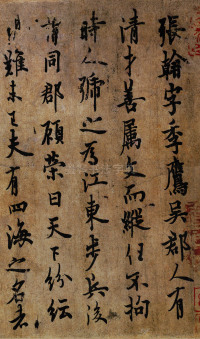 張翰字季鷹吳郡人有
清才善属文而縱任不拘
時人號之為江東步兵後
謂同郡顧榮曰天下紛紜
禍難未已夫有四海之名者